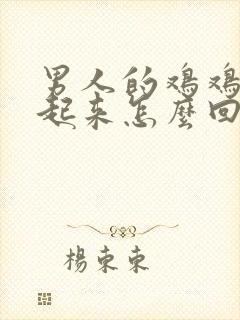 男人的鸡鸡
起来怎麼回
楊束束